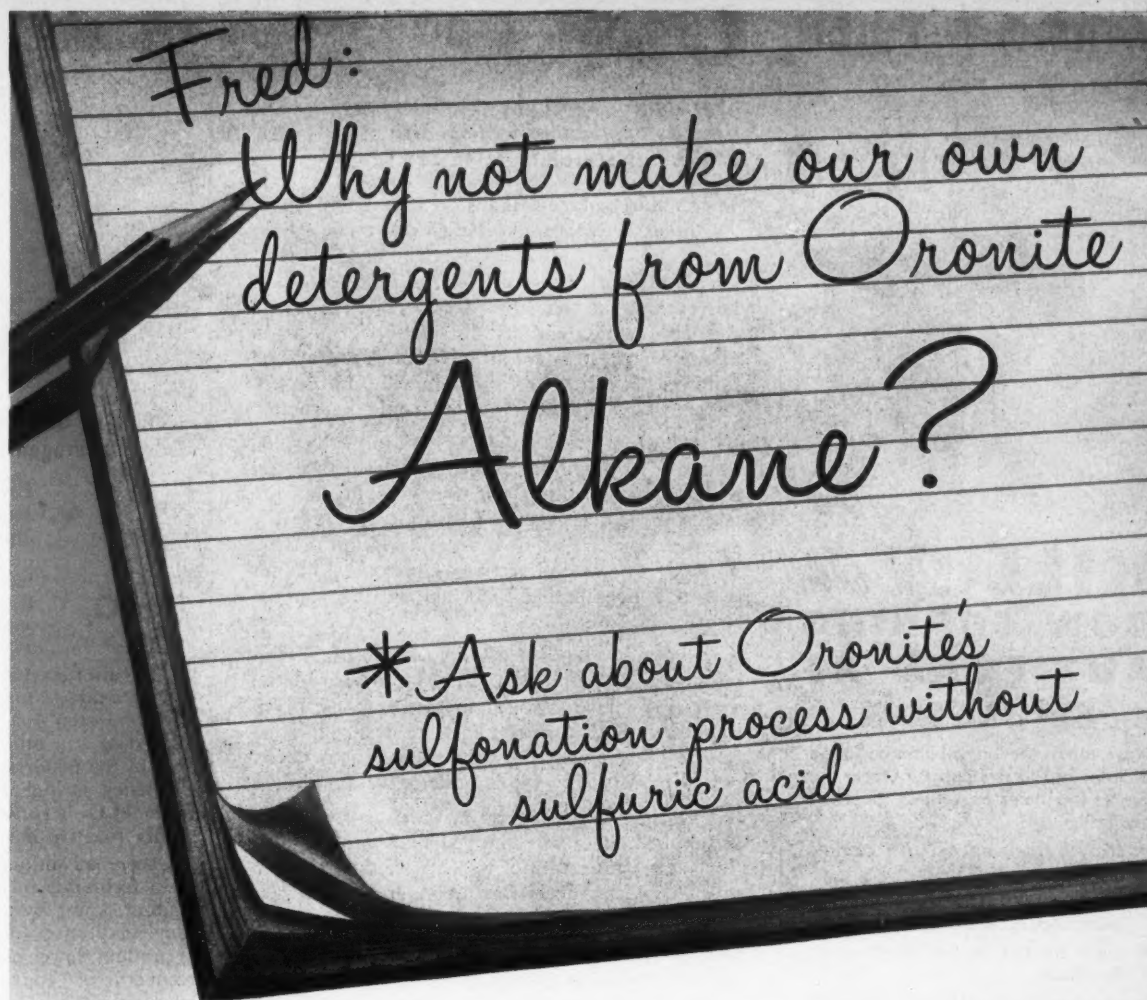 Fred:
Why not make our own
detergents from Oronite
Alkane?
* Ask about Oronite's
sulfonation process without
sulfuric acid